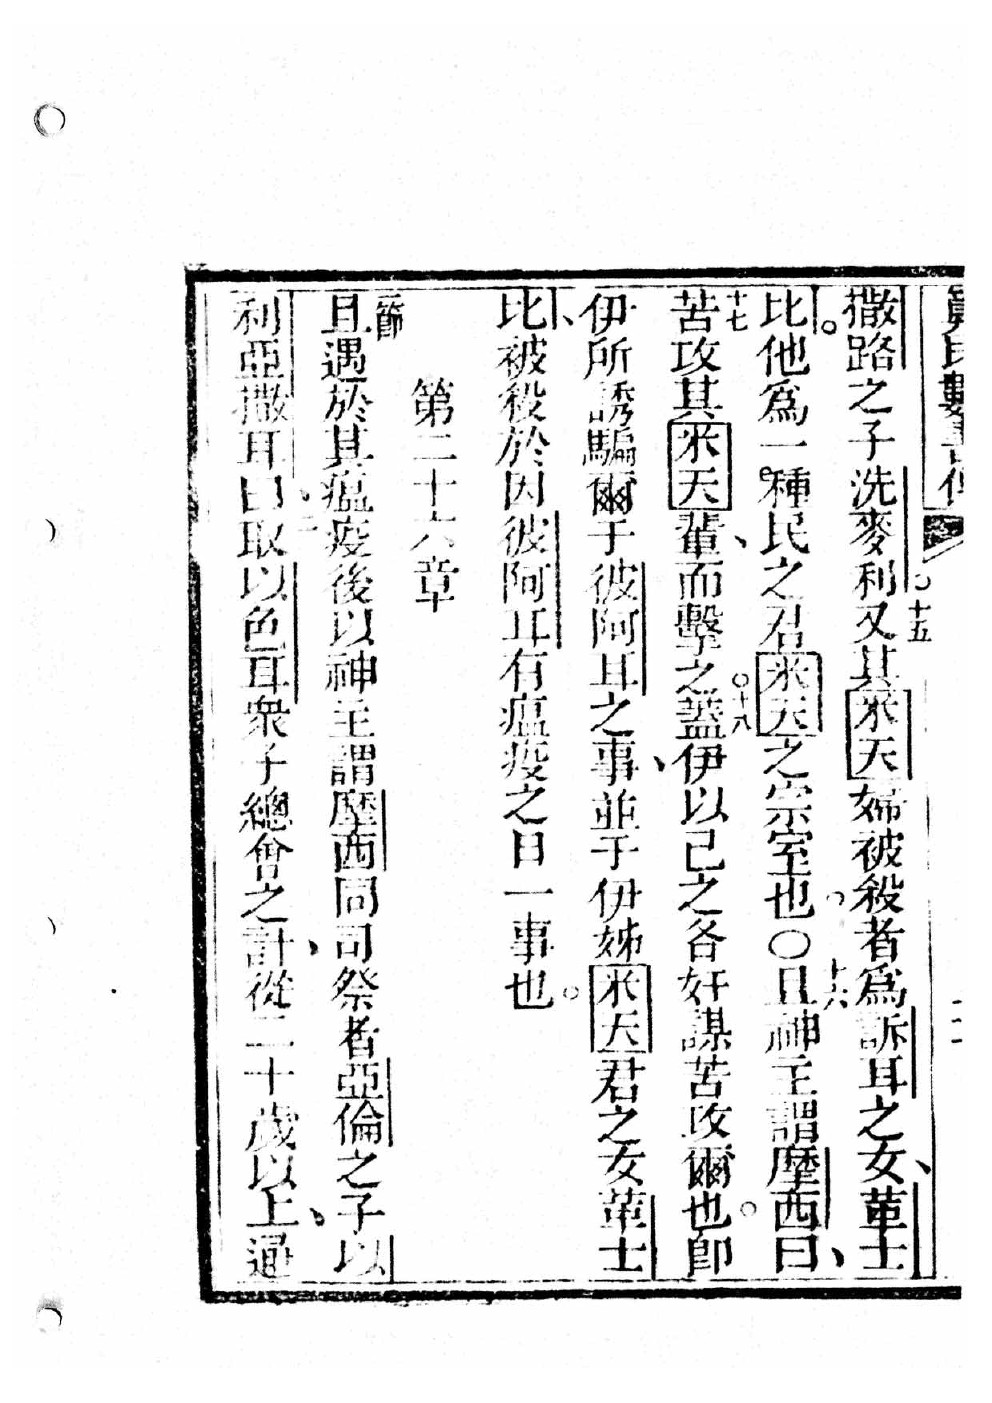 數書
二十
撒路之子洗麥利○十五又其米天婦被殺者為訴耳之女、革士
比。他為一種民之君米天之宗室也。○十六且神主謂摩西曰、
十七苦攻其米天輩、而擊之○十八蓋伊以己之各奸謀苦攻爾也。即
伊所誘騙爾于彼阿耳之事、並于伊姊米天君之女革士
比、被殺於因彼阿耳有瘟疫之日一事也。
第二十六章
一節且遇於其瘟疫後以神主謂摩西同司祭者亞倫之子以
利亞撒耳曰、二取以色耳衆子總會之計、從二十歲以上、通